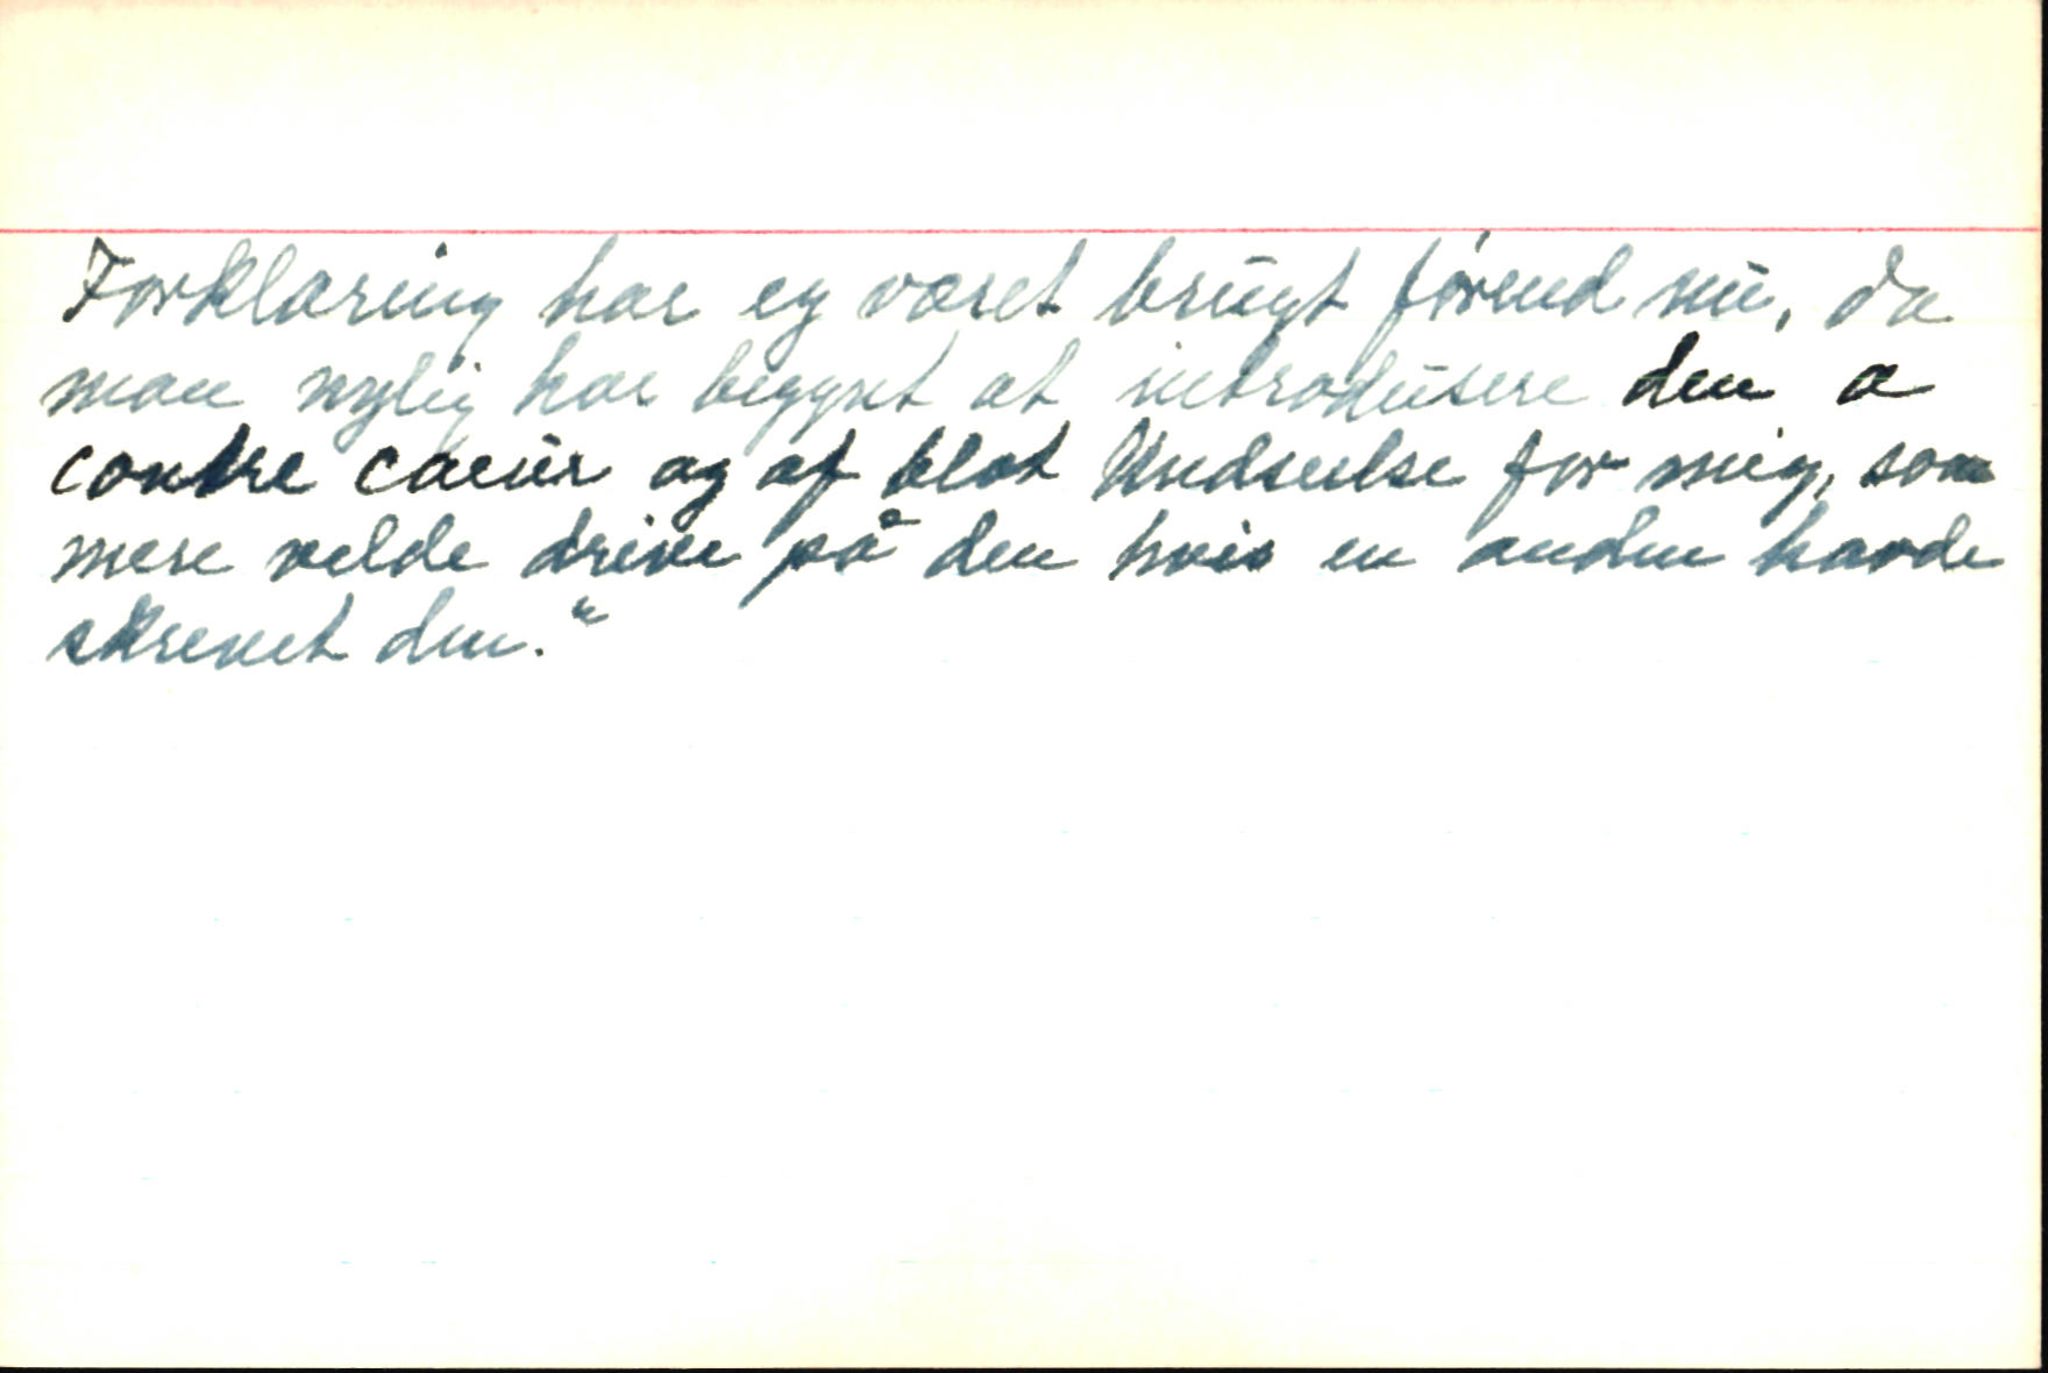 Forklaring har ey været brugt førend nu, da
man nylig har begynt at introdusere den a
contre caeur og af blot Undseelse for mig, som
mere velde drive på den hvis en anden havde
skrevet den."